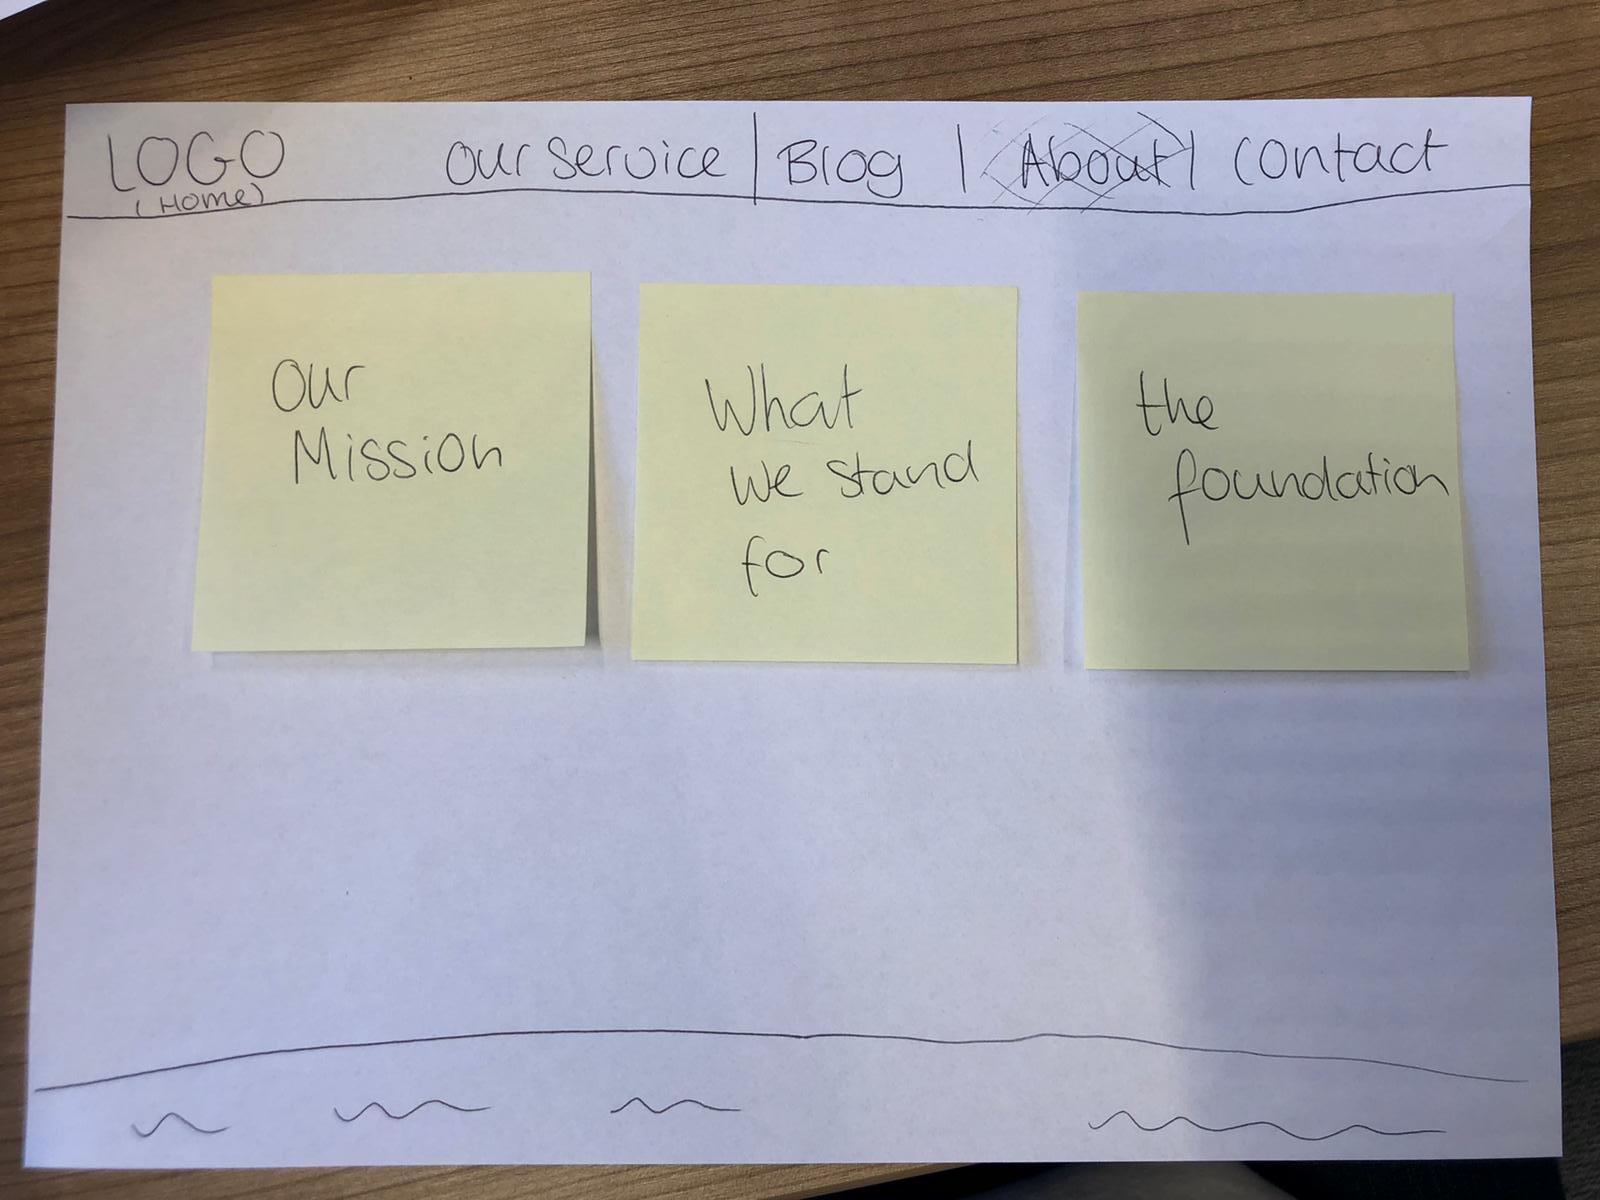 LOGO Our Service | Blog | About | Contact
(Home)
Our
Mission
What
We stand
for
the
foundation